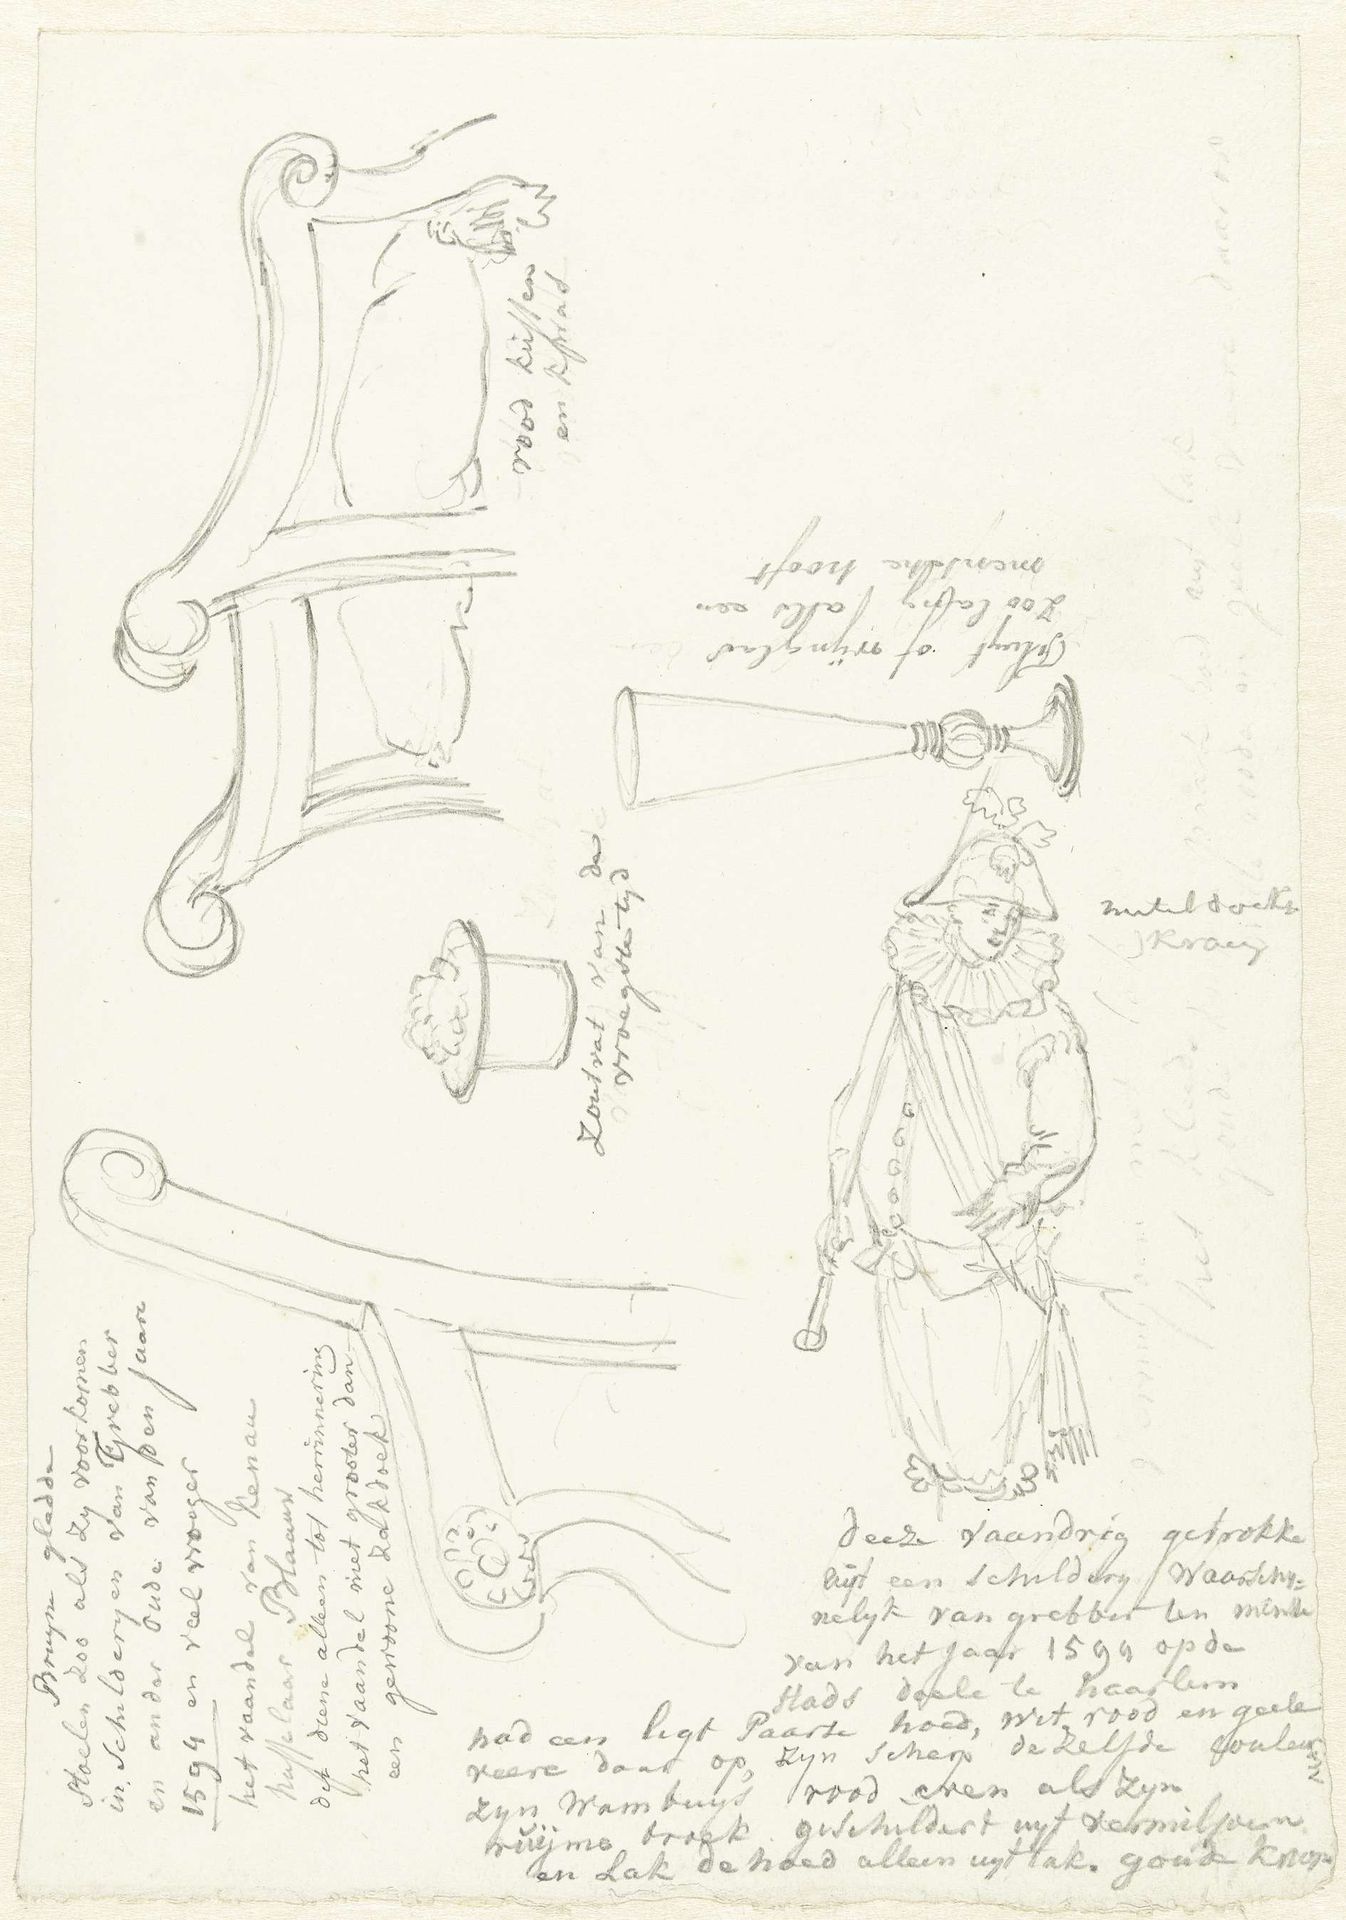 Bruyne gladde
Stoelen zoo als zy voorkomen
in Schilderyen van Grebber
en ander Oude van den Jaare
1594 en veel vroeger
het vaandel van Kenau
hasselaar Blaauw
dit diene alleen tot herinnering
het vaandel niet grooter dan
een gewoone zakdoek
rood kussen
en kwast
Zoutvat van de
vroegste tyd
Fluyt of wynglas
zoo lang als een
mensche hooft
neteldoekse
kraag
deeze vaandrig getrokke
uijt een schildery Waarschy=
nelyk van grebber ten minste
van het Jaar 1594 op de
Stads doele te haarlem
had een ligt Paarse hoed, wit, rood en geele
veere daar op, zyn scherp dezelfde couleur
zyn Wambuys rood even als zyn
ruijme broek geschildert uyt vermilioen
en Lak de hoed alleen uyt lak. goude knop